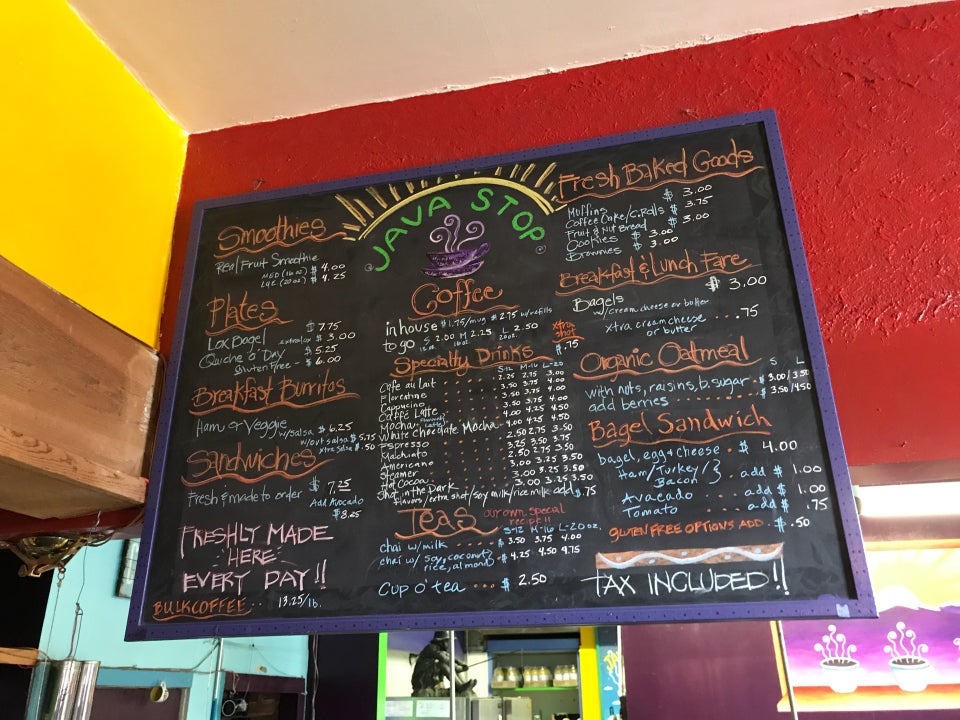 JAVA STOP
Smoothies
Real Fruit Smoothie
MED (16oz) $ 4.00
LGE (20oz) $ 4.25
Plates
Lox Bagel $ 7.75
extra lox $ 3.00
Quiche 'o' Day $ 5.25
Gluten Free - $ 6.00
Breakfast Burritos
Ham & Veggie
w/salsa $ 6.25
w/out salsa $ 5.75
xtra salsa $ .50
Sandwiches
Fresh & made to order $ 7.25
Add Avocado
$ 8.25
FRESHLY MADE
HERE
EVERY DAY!!
BULK COFFEE.. 13.25/lb.
Coffee
in house $1.75/mug $2.75 w/refills
to go S 2.00 M 2.25 L 2.50
12oz. 16oz. 20oz.
xtra shot $.75
Specialty Drinks S-12 M-16 L-20
Cafe au Lait 2.25 2.75 3.00
Florentine 3.50 3.75 4.00
Cappucino 3.50 3.75 4.00
Caffé Latte 3.50 3.75 4.00
Mocha 4.00 4.25 4.50
White Chocolate Mocha 4.00 4.25 4.50
Espresso 2.50 2.75 3.50
Machiato 3.25 3.50 3.75
Americano 2.50 2.75 3.50
Steamer 3.00 3.25 3.50
Hot Cocoa 3.00 3.25 3.50
Shot in the Dark 3.00 3.25 3.50
flavors/extra shot/soy milk/rice milk add $.75
Teas our own special recipe!!
S-12 M-16 L-20oz.
chai w/milk $ 3.50 3.75 4.00
chai w/ soy, coconut, rice, almond $ 4.25 4.50 4.75
Cup o' tea .... $ 2.50
Fresh Baked Goods
Muffins $ 3.00
Coffee Cake/C. Rolls $ 3.75
Fruit & Nut Bread $ 3.00
Cookies $ 3.00
Brownies $ 3.00
Breakfast & Lunch Fare
Bagels $ 3.00
w/cream cheese or butter
xtra cream cheese .... .75
or butter
Organic Oatmeal S L
with nuts, raisins, b. sugar $ 3.00/3.50
add berries $ 3.50/4.50
Bagel Sandwich
bagel, egg & cheese . $ 4.00
Ham/Turkey/Bacon } add $ 1.00
Avacado add $ 1.00
Tomato add $ .75
GLUTEN FREE OPTIONS ADD . $ .50
TAX INCLUDED!!